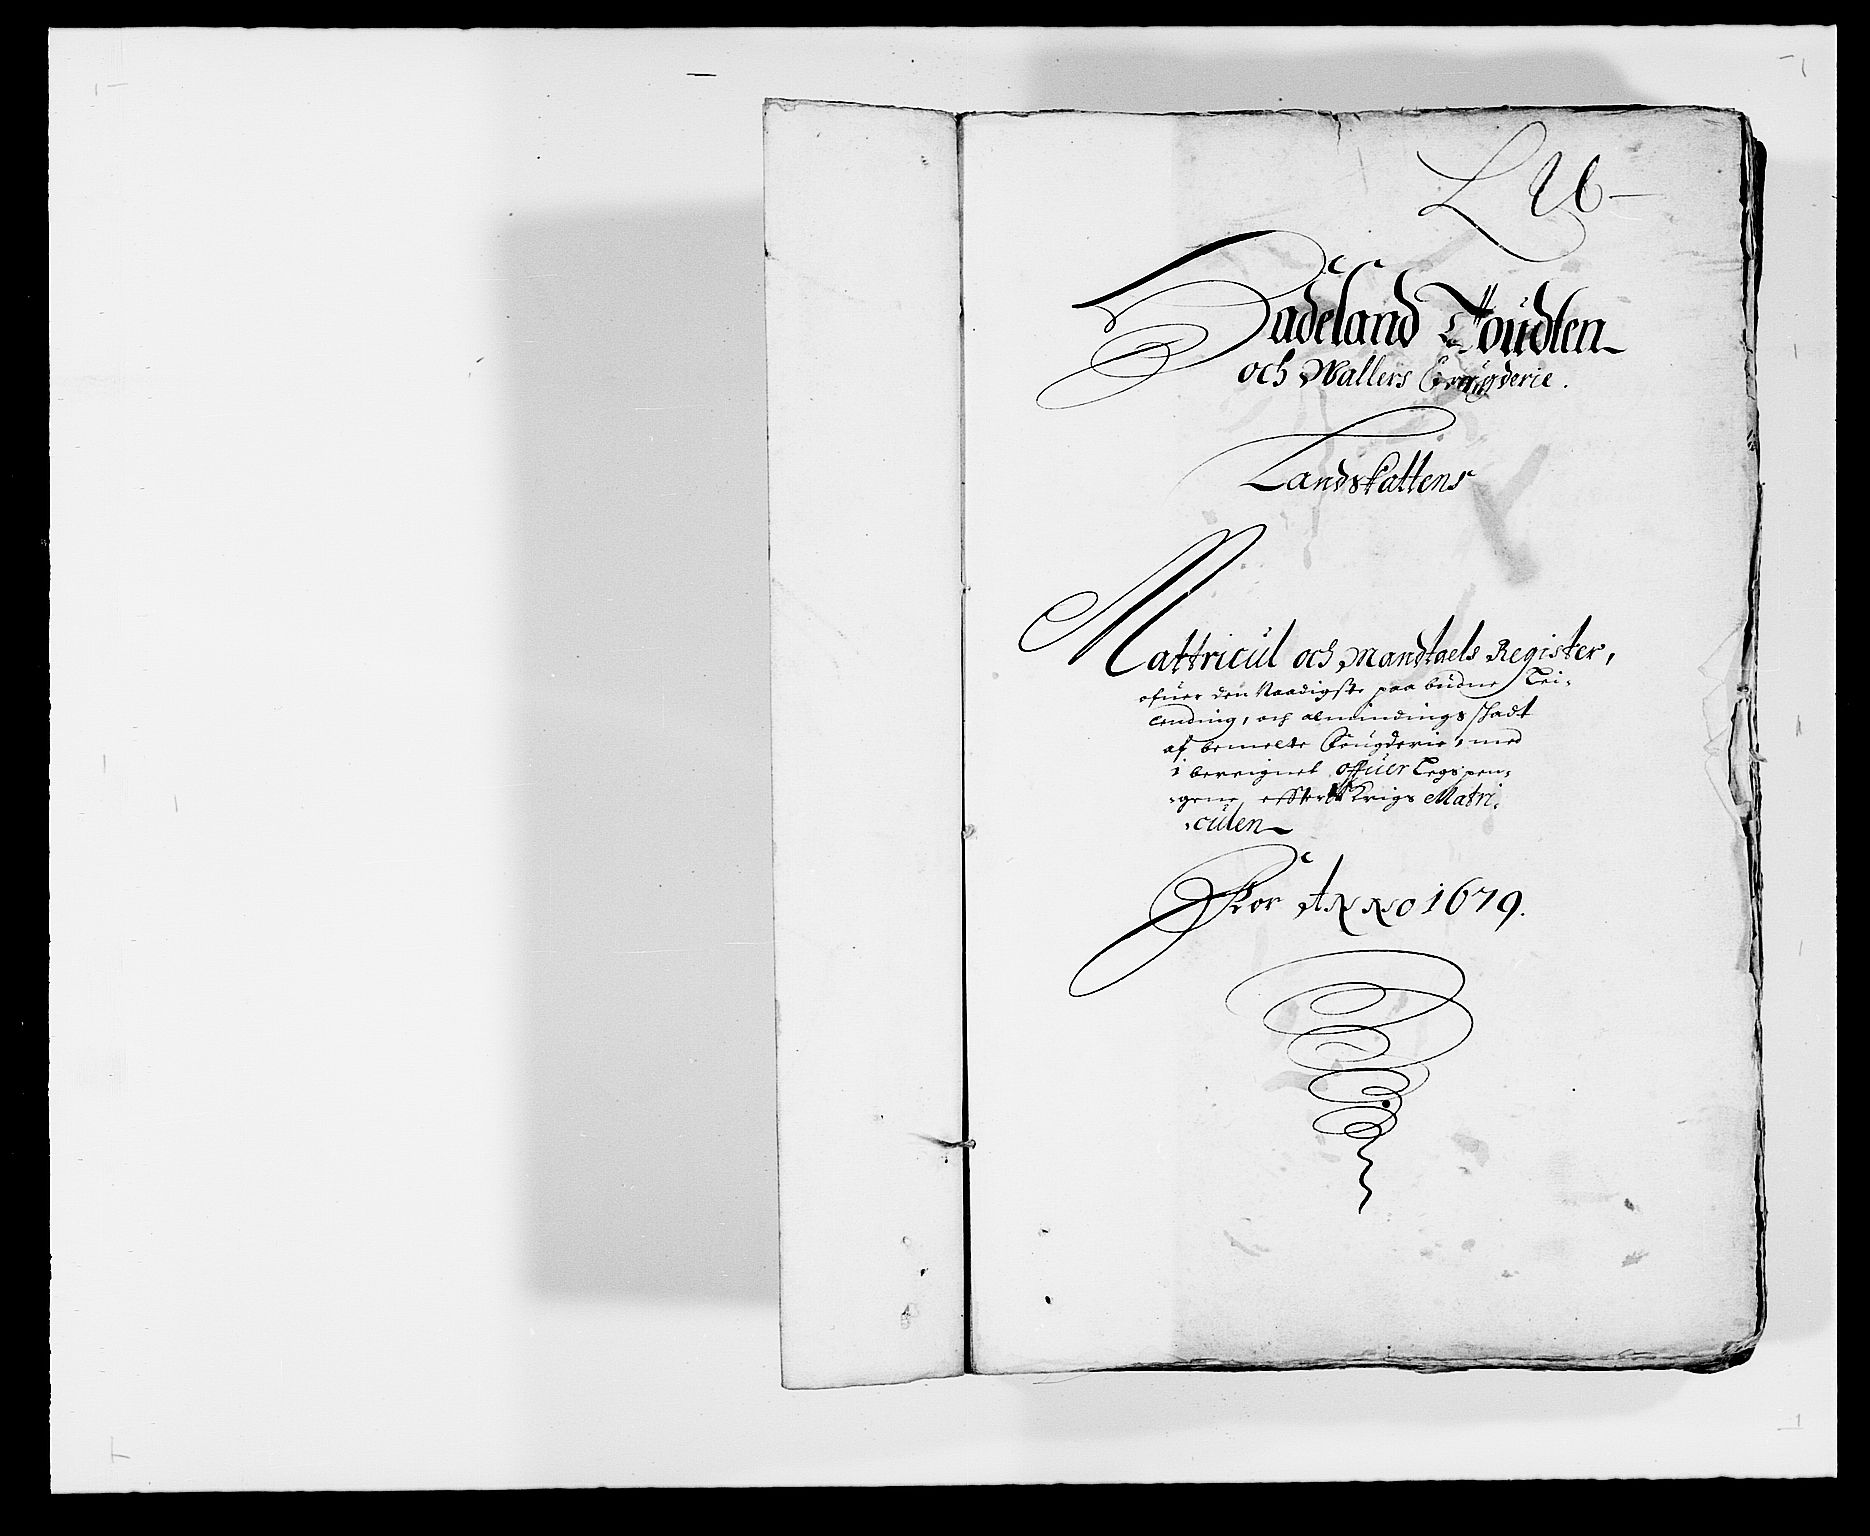 Hadeland Toüdten
och Wallers Fougderie.
Landskattens
Mattricül och Mandtaels Register,
ofuer den Naadigste paa büdne Lei=
lending, och almindings skadt
af bemelte Fougderie, med
i bereignet offüer Legspen=
=gene, effter Krigs Matri=
=cülen
For ANNO 1679.